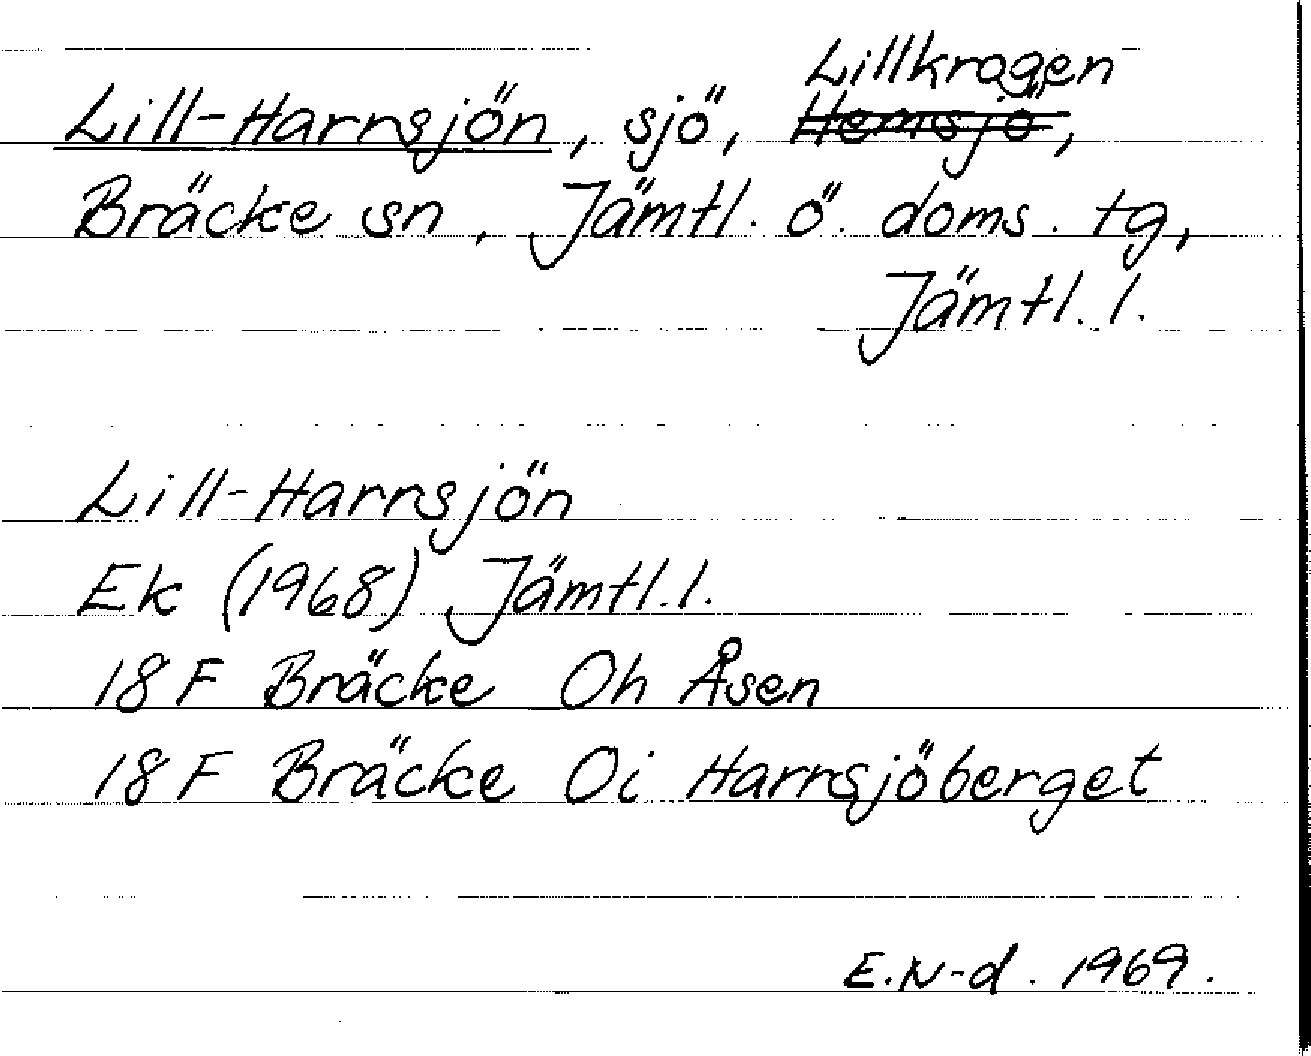 Lillkrogen
Lill-Harrsjön, sjö, Hemsjö,
Bräcke sn, Jämtl. ö. doms. tg,
Jämtl. l.
Lill-Harrsjön
Ek (1968) Jämtl. l.
18 F Bräcke Oh Åsen
18 F Bräcke Oi Harrsjöberget
E.N-d. 1969.